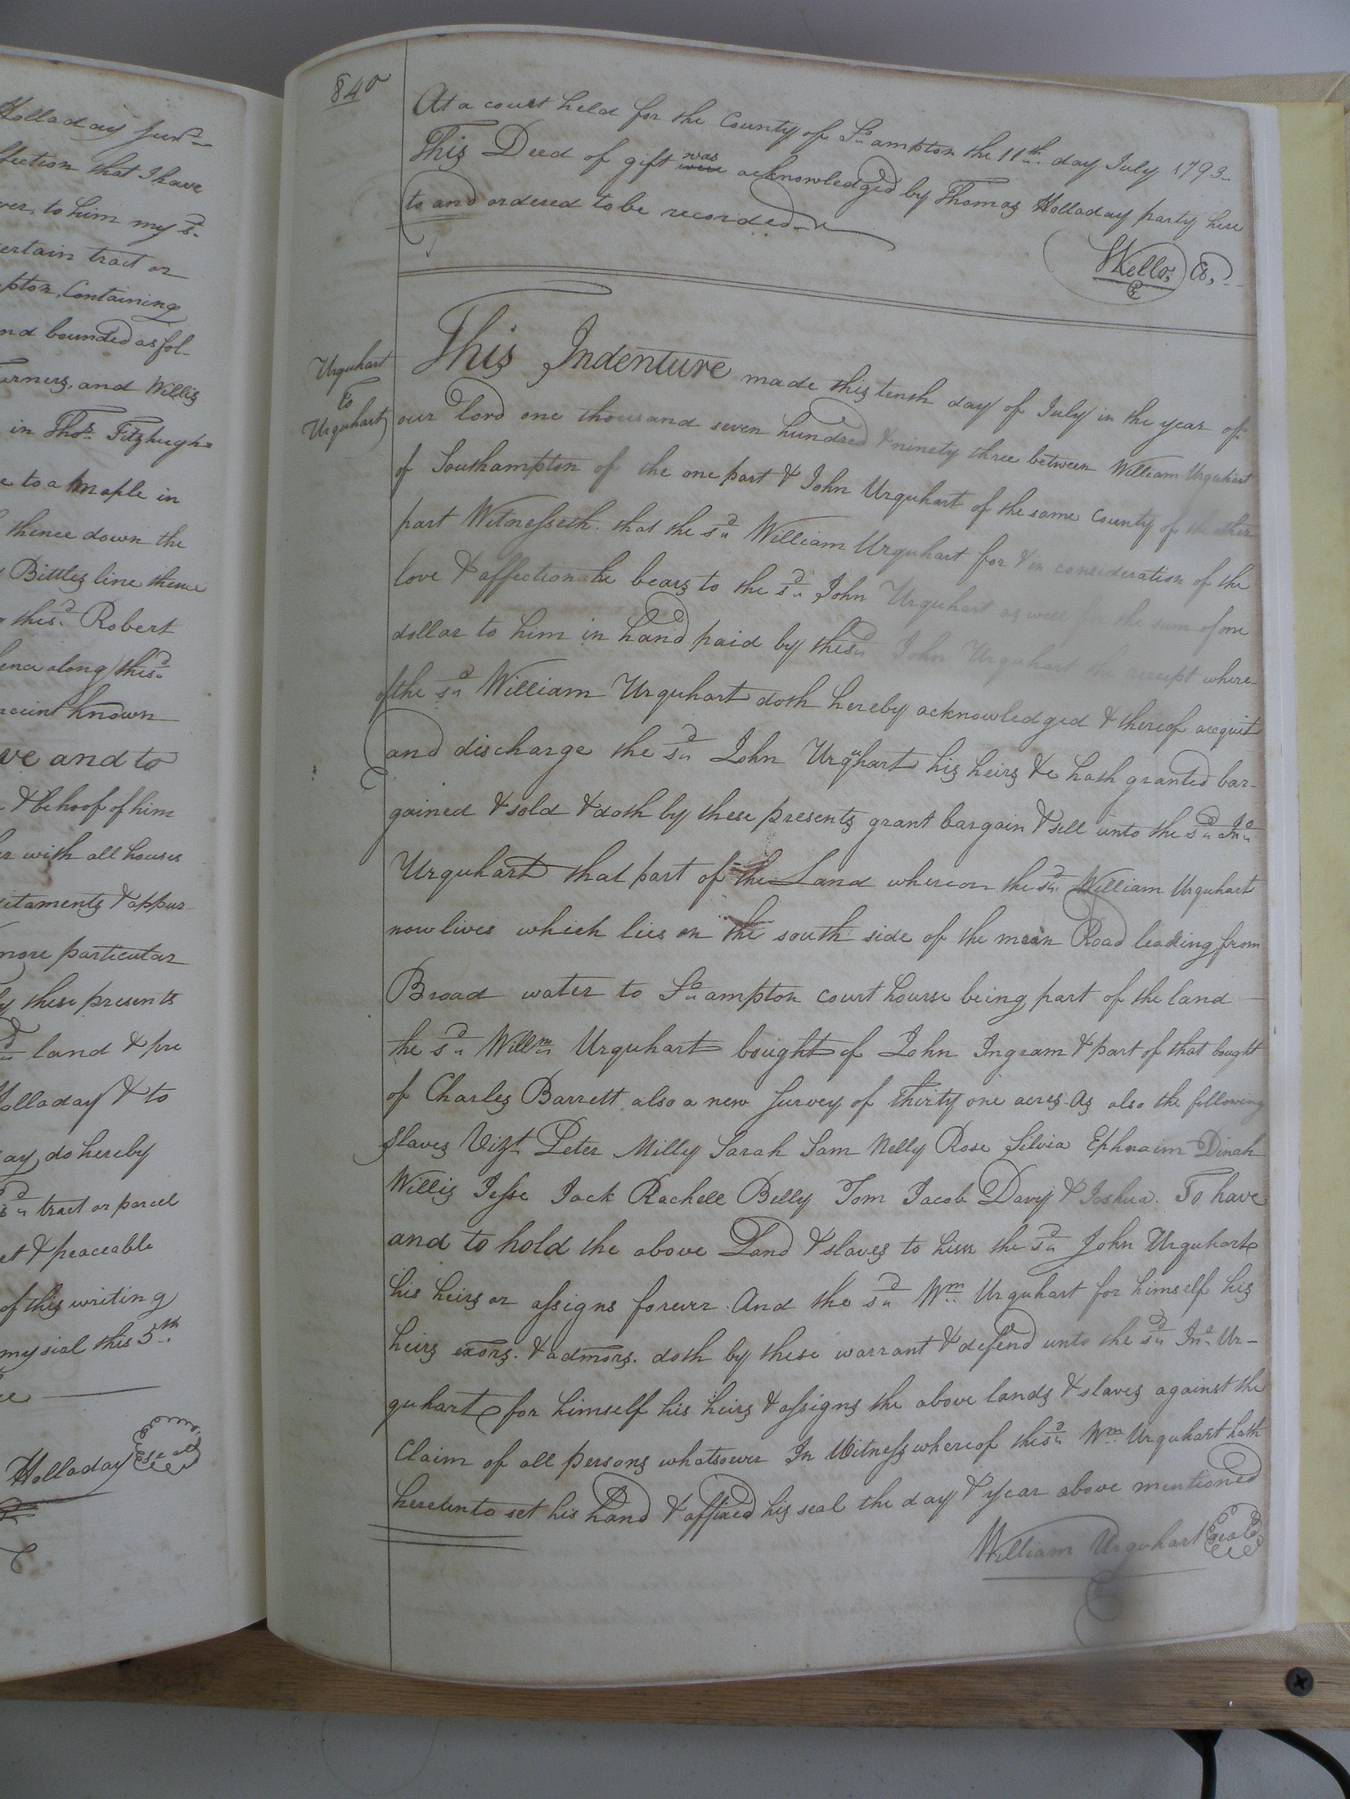 Holladay Junr
ffection that I have
ver, to him my sd
certain tract or
pton, Containing
nd bounded as fol-
urners, and Willis
in Thos. Fitzhughs
e to a maple in
thence down the
Bittles line thence
this. Robert
hence along this
known
ve and to
& behoof of him
er with all houses
itaments & appur-
more particular
by these presents
land & pre
Holladay & to
ay, do hereby
sd tract or parcel
et & peaceable
of this writing
my seal this 5th
Holladay Seal
840
At a court held for the County of So ampton the 11th day July 1793
This Deed of gift was were acknowledged by Thomas Holladay party here
to and ordered to be recorded
SKello, CC.
Urquhart
to
Urquhart
This Indenture made this tenth day of July in the year of
our Lord one thousand seven hundred & ninety three between William Urquhart
of Southampton of the one part & John Urquhart of the same County of the other
part Witnesseth that the sd William Urquhart for & in consideration of the
love & affection he bears to the sd John Urquhart as well for the sum of one
dollar to him in hand paid by the sd John Urquhart the receipt where-
of the sd William Urquhart doth hereby acknowledged & thereof acquit
and discharge the sd John Urquhart his heirs &c hath granted bar-
gained & sold & doth by these presents grant bargain & sell unto the sd Jno
Urquhart that part of the Land whereon the sd William Urquhart
now lives which lies on the south side of the main Road leading from
Broad water to So ampton court hourse being part of the land
the sd Willm Urquhart bought of John Ingram & part of that bought
of Charles Barrett also a new Survey of Thirty one acres. As also the following
Slaves Vizt Peter Milly Sarah Sam Nelly Rose Silvia Ephraim Dinah
Willis Jesse Jack Rachell Belly Tom Jacob Davy & Joshua. To have
and to hold the above Land & slaves to him the sd John Urquhart
his heirs or assigns forever. And the sd Wm Urquhart for himself his
heirs exors. & admors. doth by these warrant & defend unto the sd Jno. Ur-
quhart for himself his heirs & assigns the above lands & slaves against the
Claim of all persons whatsoever In Witness whereof the sd Wm Urquhart hath
hereunto set his hand & affixed his seal the day & year above mentioned
William Urquhart Seal